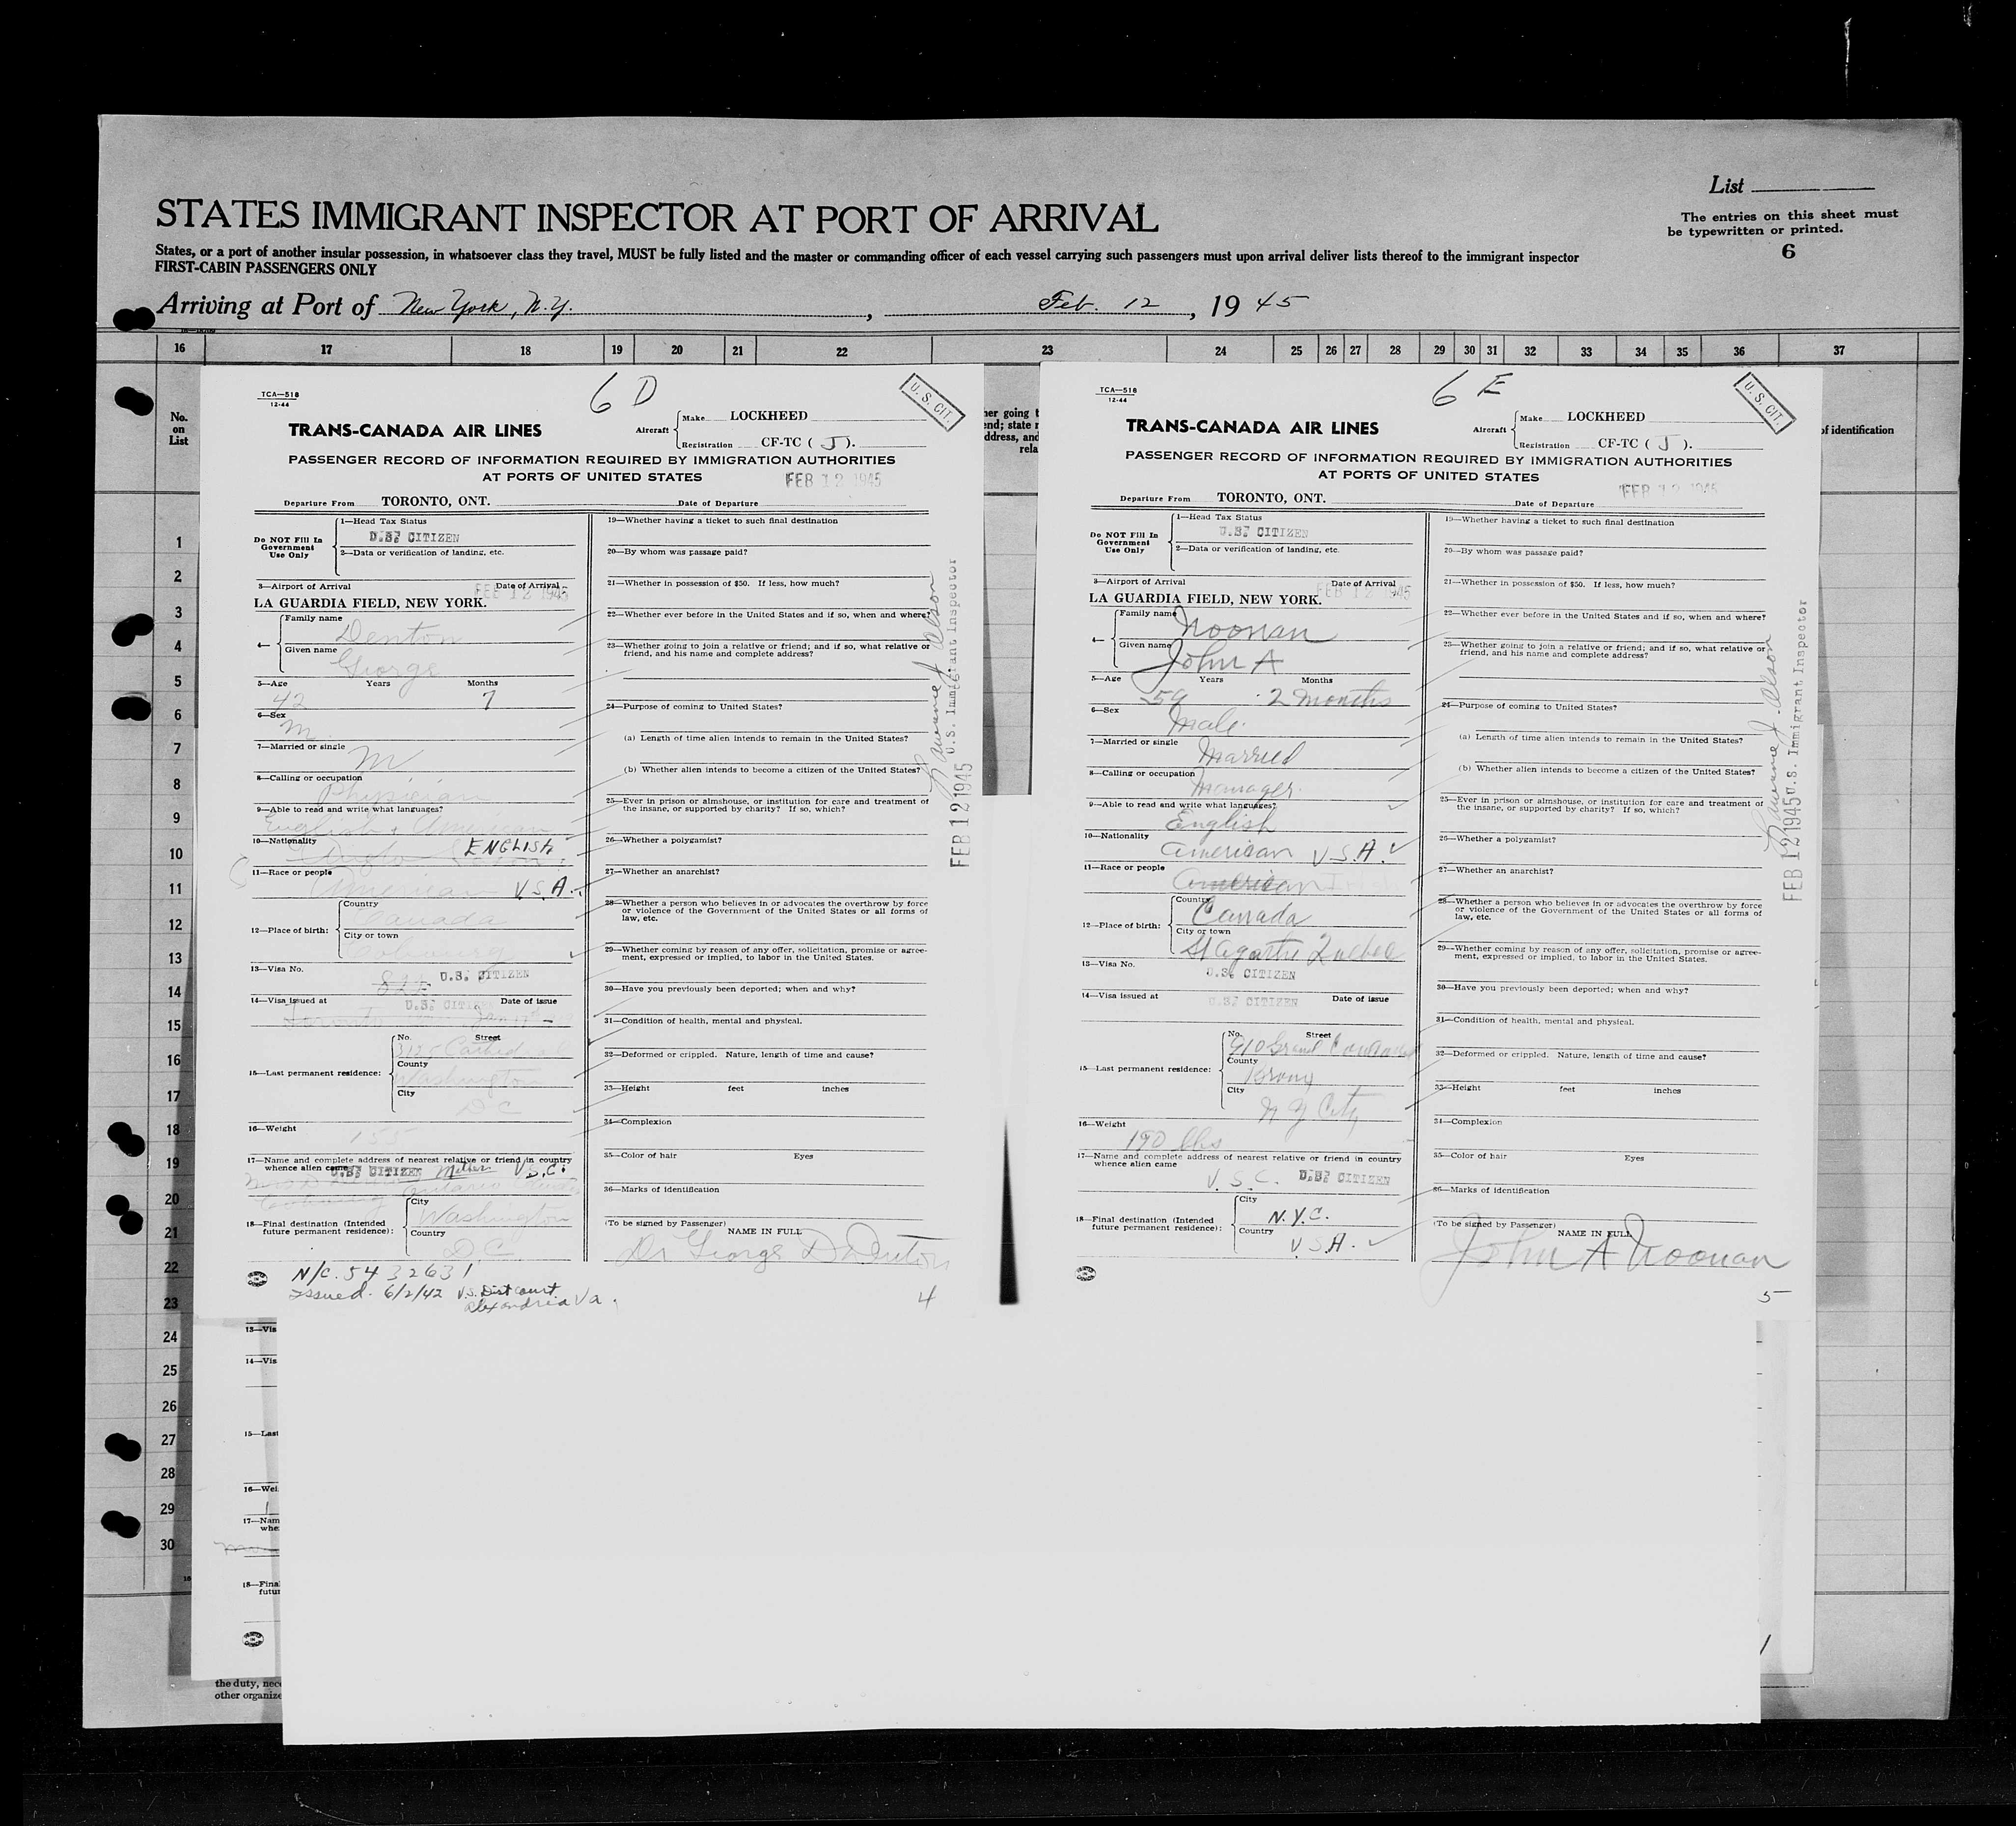 List
The entries on this sheet must
be typewritten or printed.
6
STATES IMMIGRANT INSPECTOR AT PORT OF ARRIVAL
States, or a port of another insular possession, in whatsoever class they travel, MUST be fully listed and the master or commanding officer of each vessel carrying such passengers must upon arrival deliver lists thereof to the immigrant inspector
FIRST-CABIN PASSENGERS ONLY
Arriving at Port of New York, N.Y., Feb. 12, 1945
16 17 18 19 20 21 22 23 24 25 26 27 28 29 30 31 32 33 34 35 36 37
No.
on
List
1
2
3
4
5
6
7
8
9
10
11
12
13
14
15
16
17
18
19
20
21
22
23
24
25
26
27
28
29
30
TCA—518
12-44
6 D
U. S. CIT.
TRANS-CANADA AIR LINES
Aircraft
Make LOCKHEED
Registration CF-TC ( J ).
PASSENGER RECORD OF INFORMATION REQUIRED BY IMMIGRATION AUTHORITIES
AT PORTS OF UNITED STATES
FEB 12 1945
Departure From TORONTO, ONT. Date of Departure
Do NOT Fill In
Government
Use Only
1—Head Tax Status
U.S. CITIZEN
2—Data or verification of landing, etc.
3—Airport of Arrival Date of Arrival
FEB 12 1945
LA GUARDIA FIELD, NEW YORK.
4—
Family name
Denton
Given name
George
5—Age Years Months
42 7
6—Sex
M
7—Married or single
M
8—Calling or occupation
Physician
9—Able to read and write what languages?
English + American
10—Nationality
ENGLISH
11—Race or people
American U.S.A.
12—Place of birth:
Country
Canada
City or town
13—Visa No.
U.S. CITIZEN
14—Visa issued at Date of issue
U.S. CITIZEN
Toronto
15—Last permanent residence:
No. Street
County
Washington
City
D C
16—Weight
155
17—Name and complete address of nearest relative or friend in country
whence alien came
U.S. CITIZEN Mother U.S.C.
18—Final destination (Intended
future permanent residence):
City
Washington
Country
D.C.
N/C. 5432631
Issued 6/2/42 U.S. Dist Court
Alexandria Va.
19—Whether having a ticket to such final destination
20—By whom was passage paid?
21—Whether in possession of $50. If less, how much?
22—Whether ever before in the United States and if so, when and where?
23—Whether going to join a relative or friend; and if so, what relative or
friend, and his name and complete address?
24—Purpose of coming to United States?
(a) Length of time alien intends to remain in the United States?
(b) Whether alien intends to become a citizen of the United States?
25—Ever in prison or almshouse, or institution for care and treatment of
the insane, or supported by charity? If so, which?
26—Whether a polygamist?
27—Whether an anarchist?
28—Whether a person who believes in or advocates the overthrow by force
or violence of the Government of the United States or all forms of
law, etc.
29—Whether coming by reason of any offer, solicitation, promise or agree-
ment, expressed or implied, to labor in the United States.
30—Have you previously been deported; when and why?
31—Condition of health, mental and physical.
32—Deformed or crippled. Nature, length of time and cause?
33—Height feet inches
34—Complexion
35—Color of hair Eyes
36—Marks of identification
(To be signed by Passenger)
NAME IN FULL
Dr George D Denton
4
FEB 12 1945 U.S. Immigrant Inspector
TCA—518
12-44
6 E
U. S. CIT.
TRANS-CANADA AIR LINES
Aircraft
Make LOCKHEED
Registration CF-TC ( J ).
PASSENGER RECORD OF INFORMATION REQUIRED BY IMMIGRATION AUTHORITIES
AT PORTS OF UNITED STATES
FEB 12 1945
Departure From TORONTO, ONT. Date of Departure
Do NOT Fill In
Government
Use Only
1—Head Tax Status
U.S. CITIZEN
2—Data or verification of landing, etc.
3—Airport of Arrival Date of Arrival
FEB 12 1945
LA GUARDIA FIELD, NEW YORK.
4—
Family name
Noonan
Given name
John A
5—Age Years Months
59 2 months
6—Sex
Male
7—Married or single
Married
8—Calling or occupation
Manager
9—Able to read and write what languages?
English
10—Nationality
American U.S.A.
11—Race or people
American
12—Place of birth:
Country
Canada
City or town
St Agathe Quebec
13—Visa No.
U.S. CITIZEN
14—Visa issued at Date of issue
U.S. CITIZEN
15—Last permanent residence:
No. Street
910 Grand Concourse
County
Bronx
City
N Y City
16—Weight
190 lbs
17—Name and complete address of nearest relative or friend in country
whence alien came
U.S.C. U.S. CITIZEN
18—Final destination (Intended
future permanent residence):
City
N.Y.C.
Country
U.S.A.
19—Whether having a ticket to such final destination
20—By whom was passage paid?
21—Whether in possession of $50. If less, how much?
22—Whether ever before in the United States and if so, when and where?
23—Whether going to join a relative or friend; and if so, what relative or
friend, and his name and complete address?
24—Purpose of coming to United States?
(a) Length of time alien intends to remain in the United States?
(b) Whether alien intends to become a citizen of the United States?
25—Ever in prison or almshouse, or institution for care and treatment of
the insane, or supported by charity? If so, which?
26—Whether a polygamist?
27—Whether an anarchist?
28—Whether a person who believes in or advocates the overthrow by force
or violence of the Government of the United States or all forms of
law, etc.
29—Whether coming by reason of any offer, solicitation, promise or agree-
ment, expressed or implied, to labor in the United States.
30—Have you previously been deported; when and why?
31—Condition of health, mental and physical.
32—Deformed or crippled. Nature, length of time and cause?
33—Height feet inches
34—Complexion
35—Color of hair Eyes
36—Marks of identification
(To be signed by Passenger)
NAME IN FULL
John A Noonan
5
FEB 12 1945 U.S. Immigrant Inspector
of identification
13—Vis
14—Vis
15—Last
16—Wei
17—Nam
whe
18—Fina
futur
the duty, nec
other organize